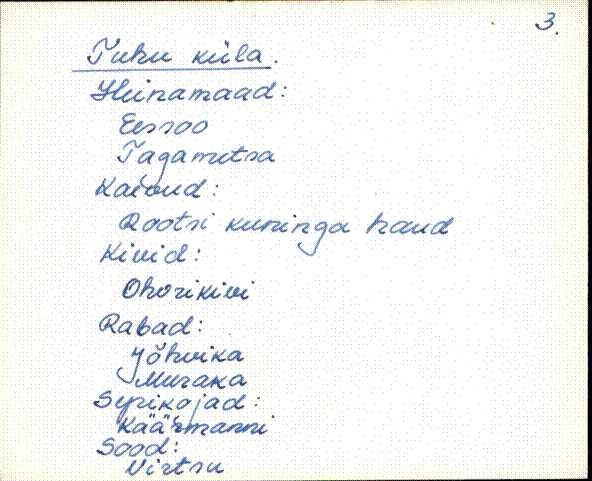 3.
Tuhu küla.
Heinamaad:
Eessoo
Tagametsa
Kaevud:
Rootsi kuninga kaud
Kivid:
Ohvrikivi
Rabad:
Jõhvika
Muraka
Sepikojad:
Käärmanni
Sood:
Virtsu